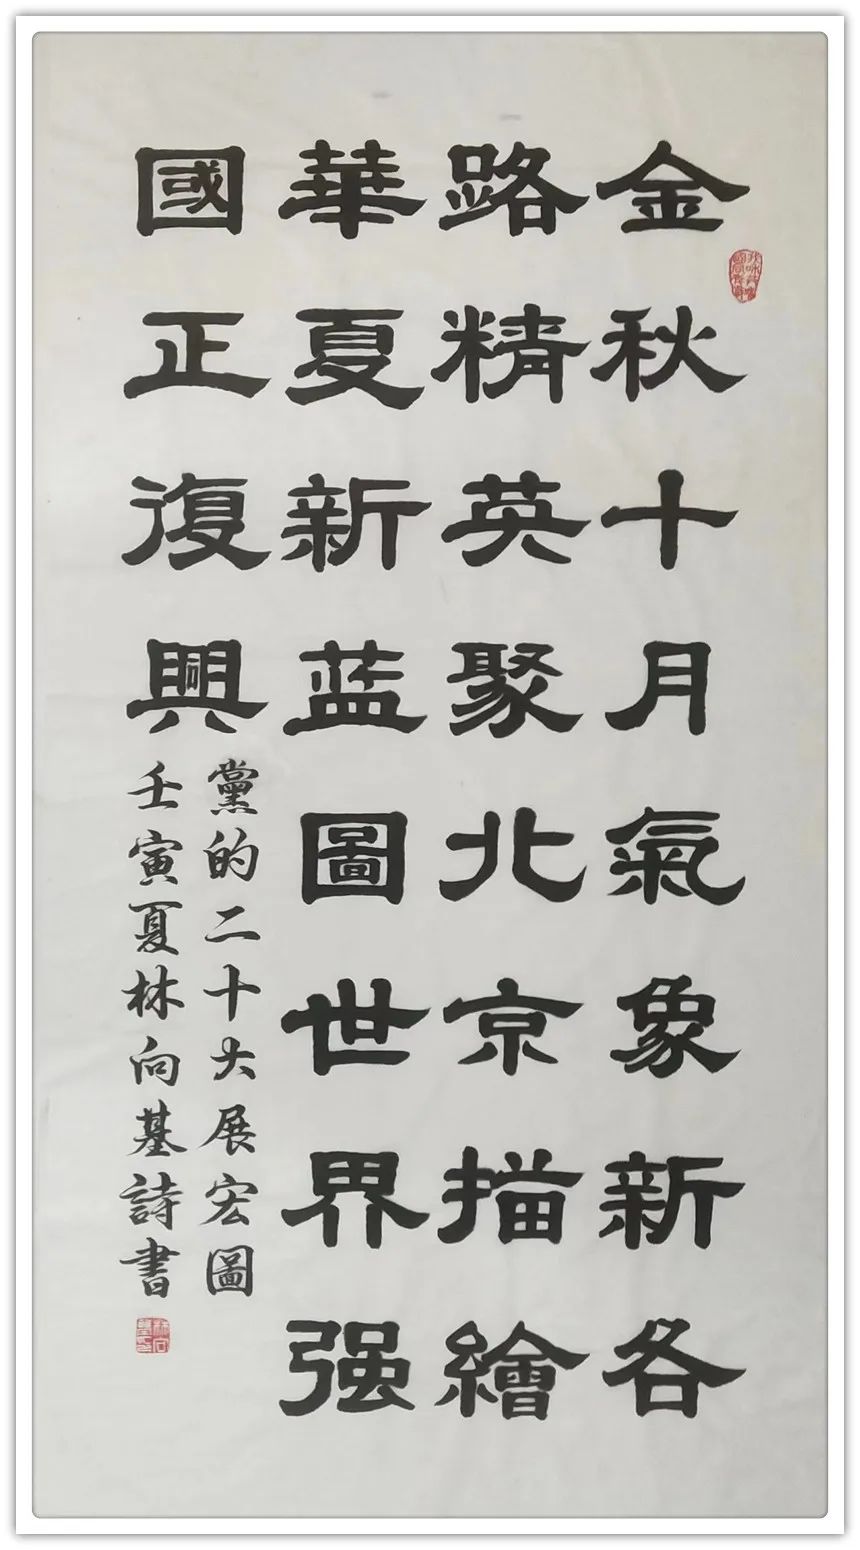 金秋十月氣象新各
路精英聚北京描繪
華夏新蓝圖世界强
國正復興
黨的二十大展宏圖
壬寅夏林向基詩書